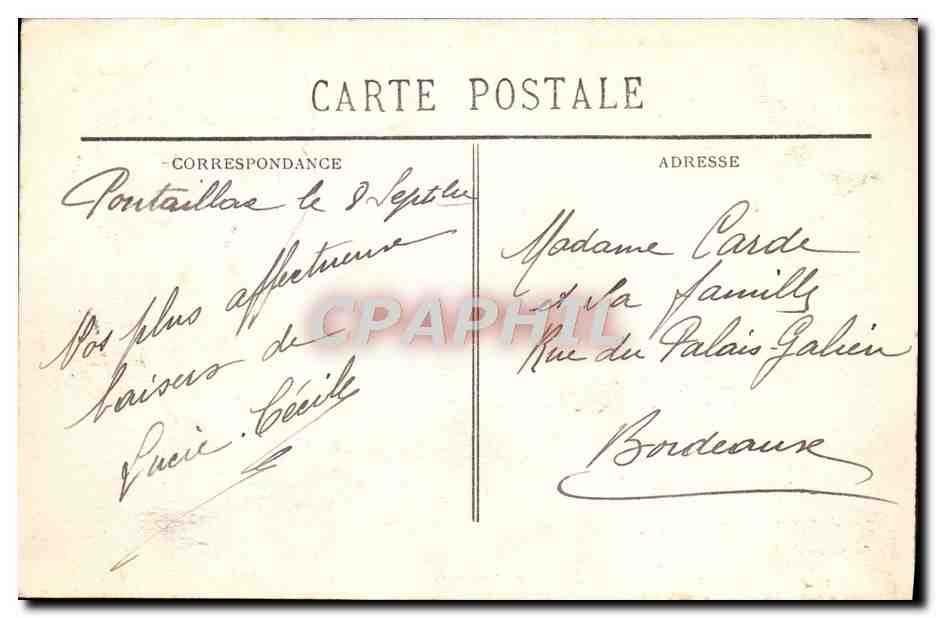 CARTE POSTALE
CORRESPONDANCE
Pontaillac le 8 Septbre
Nos plus affectueux
baisers de
Lucie. Cécile
ADRESSE
Madame Carde
et sa famille
Rue du Palais Galien
Bordeaux
CPAPHIL